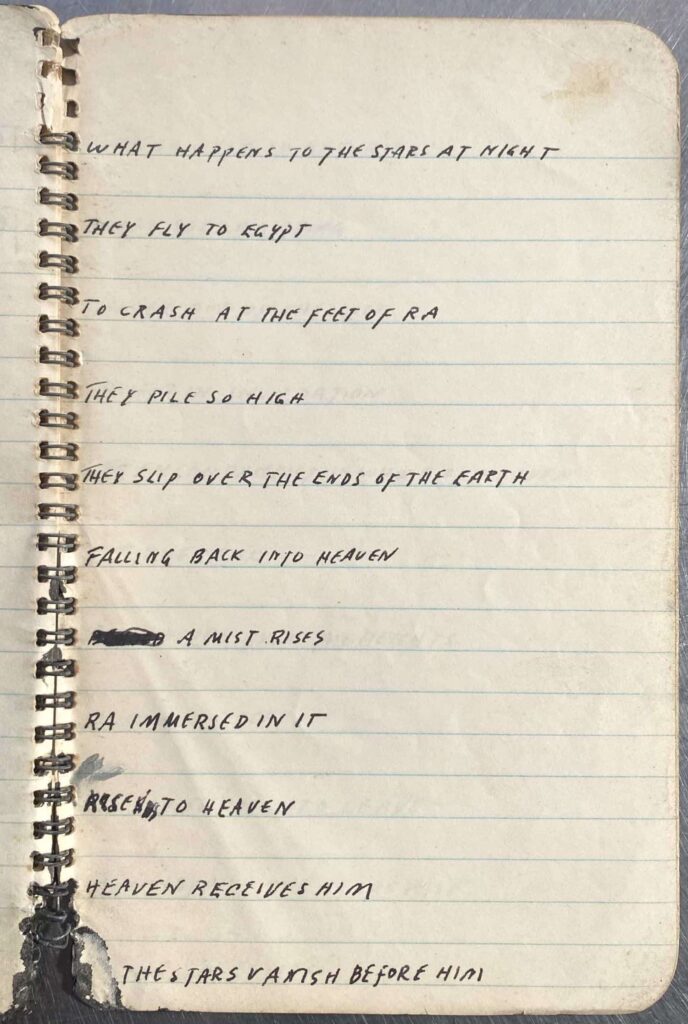 WHAT HAPPENS TO THE STARS AT NIGHT
THEY FLY TO EGYPT
TO CRASH AT THE FEET OF RA
THEY PILE SO HIGH
THEY SLIP OVER THE ENDS OF THE EARTH
FALLING BACK INTO HEAVEN
A MIST RISES
RA IMMERSED IN IT
RISES TO HEAVEN
HEAVEN RECEIVES HIM
THE STARS VANISH BEFORE HIM